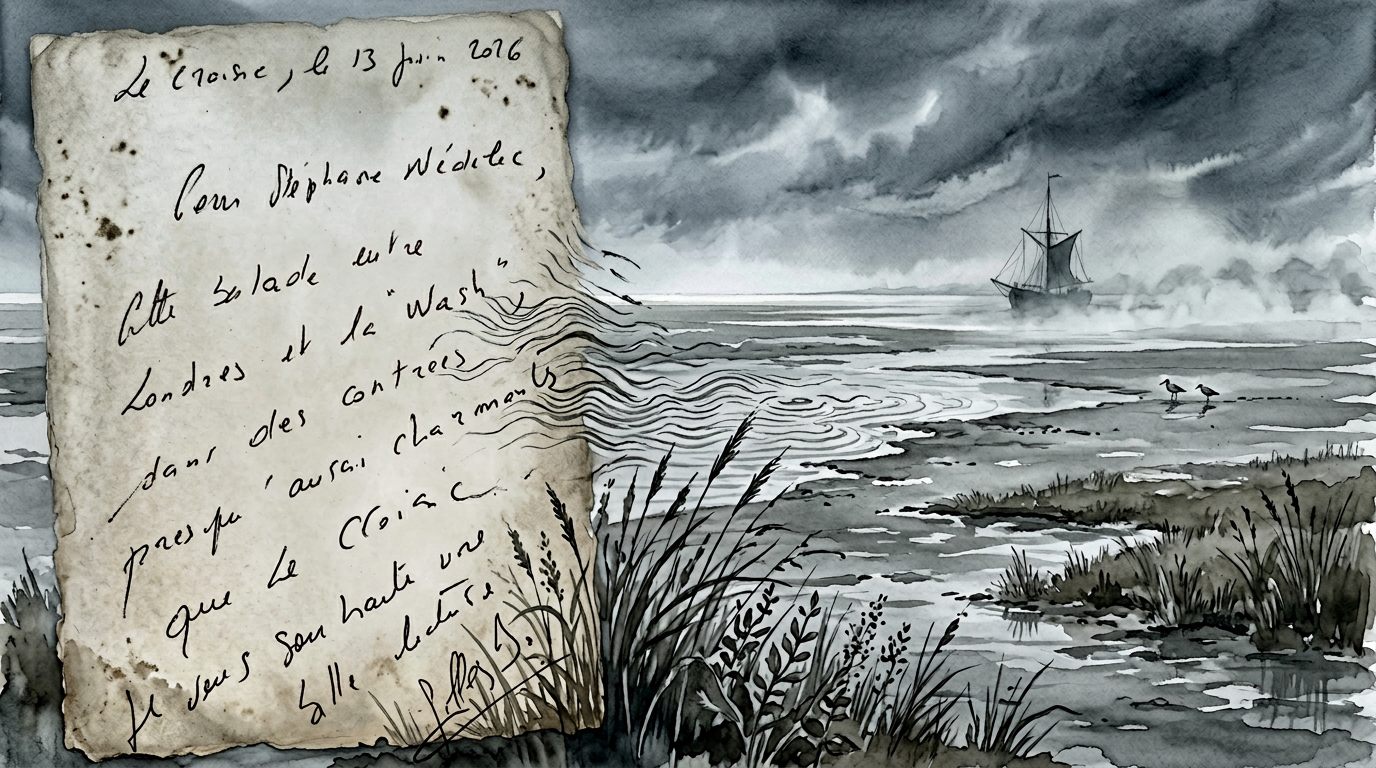 Le Croisic, le 13 juin 2026
Pour Stéphane Nédélec,
Cette balade entre
Londres et la "Wash",
dans des contrées
presqu'aussi charmants
que Le Croisic.
Je vous souhaite une
belle lecture
Gilles D.